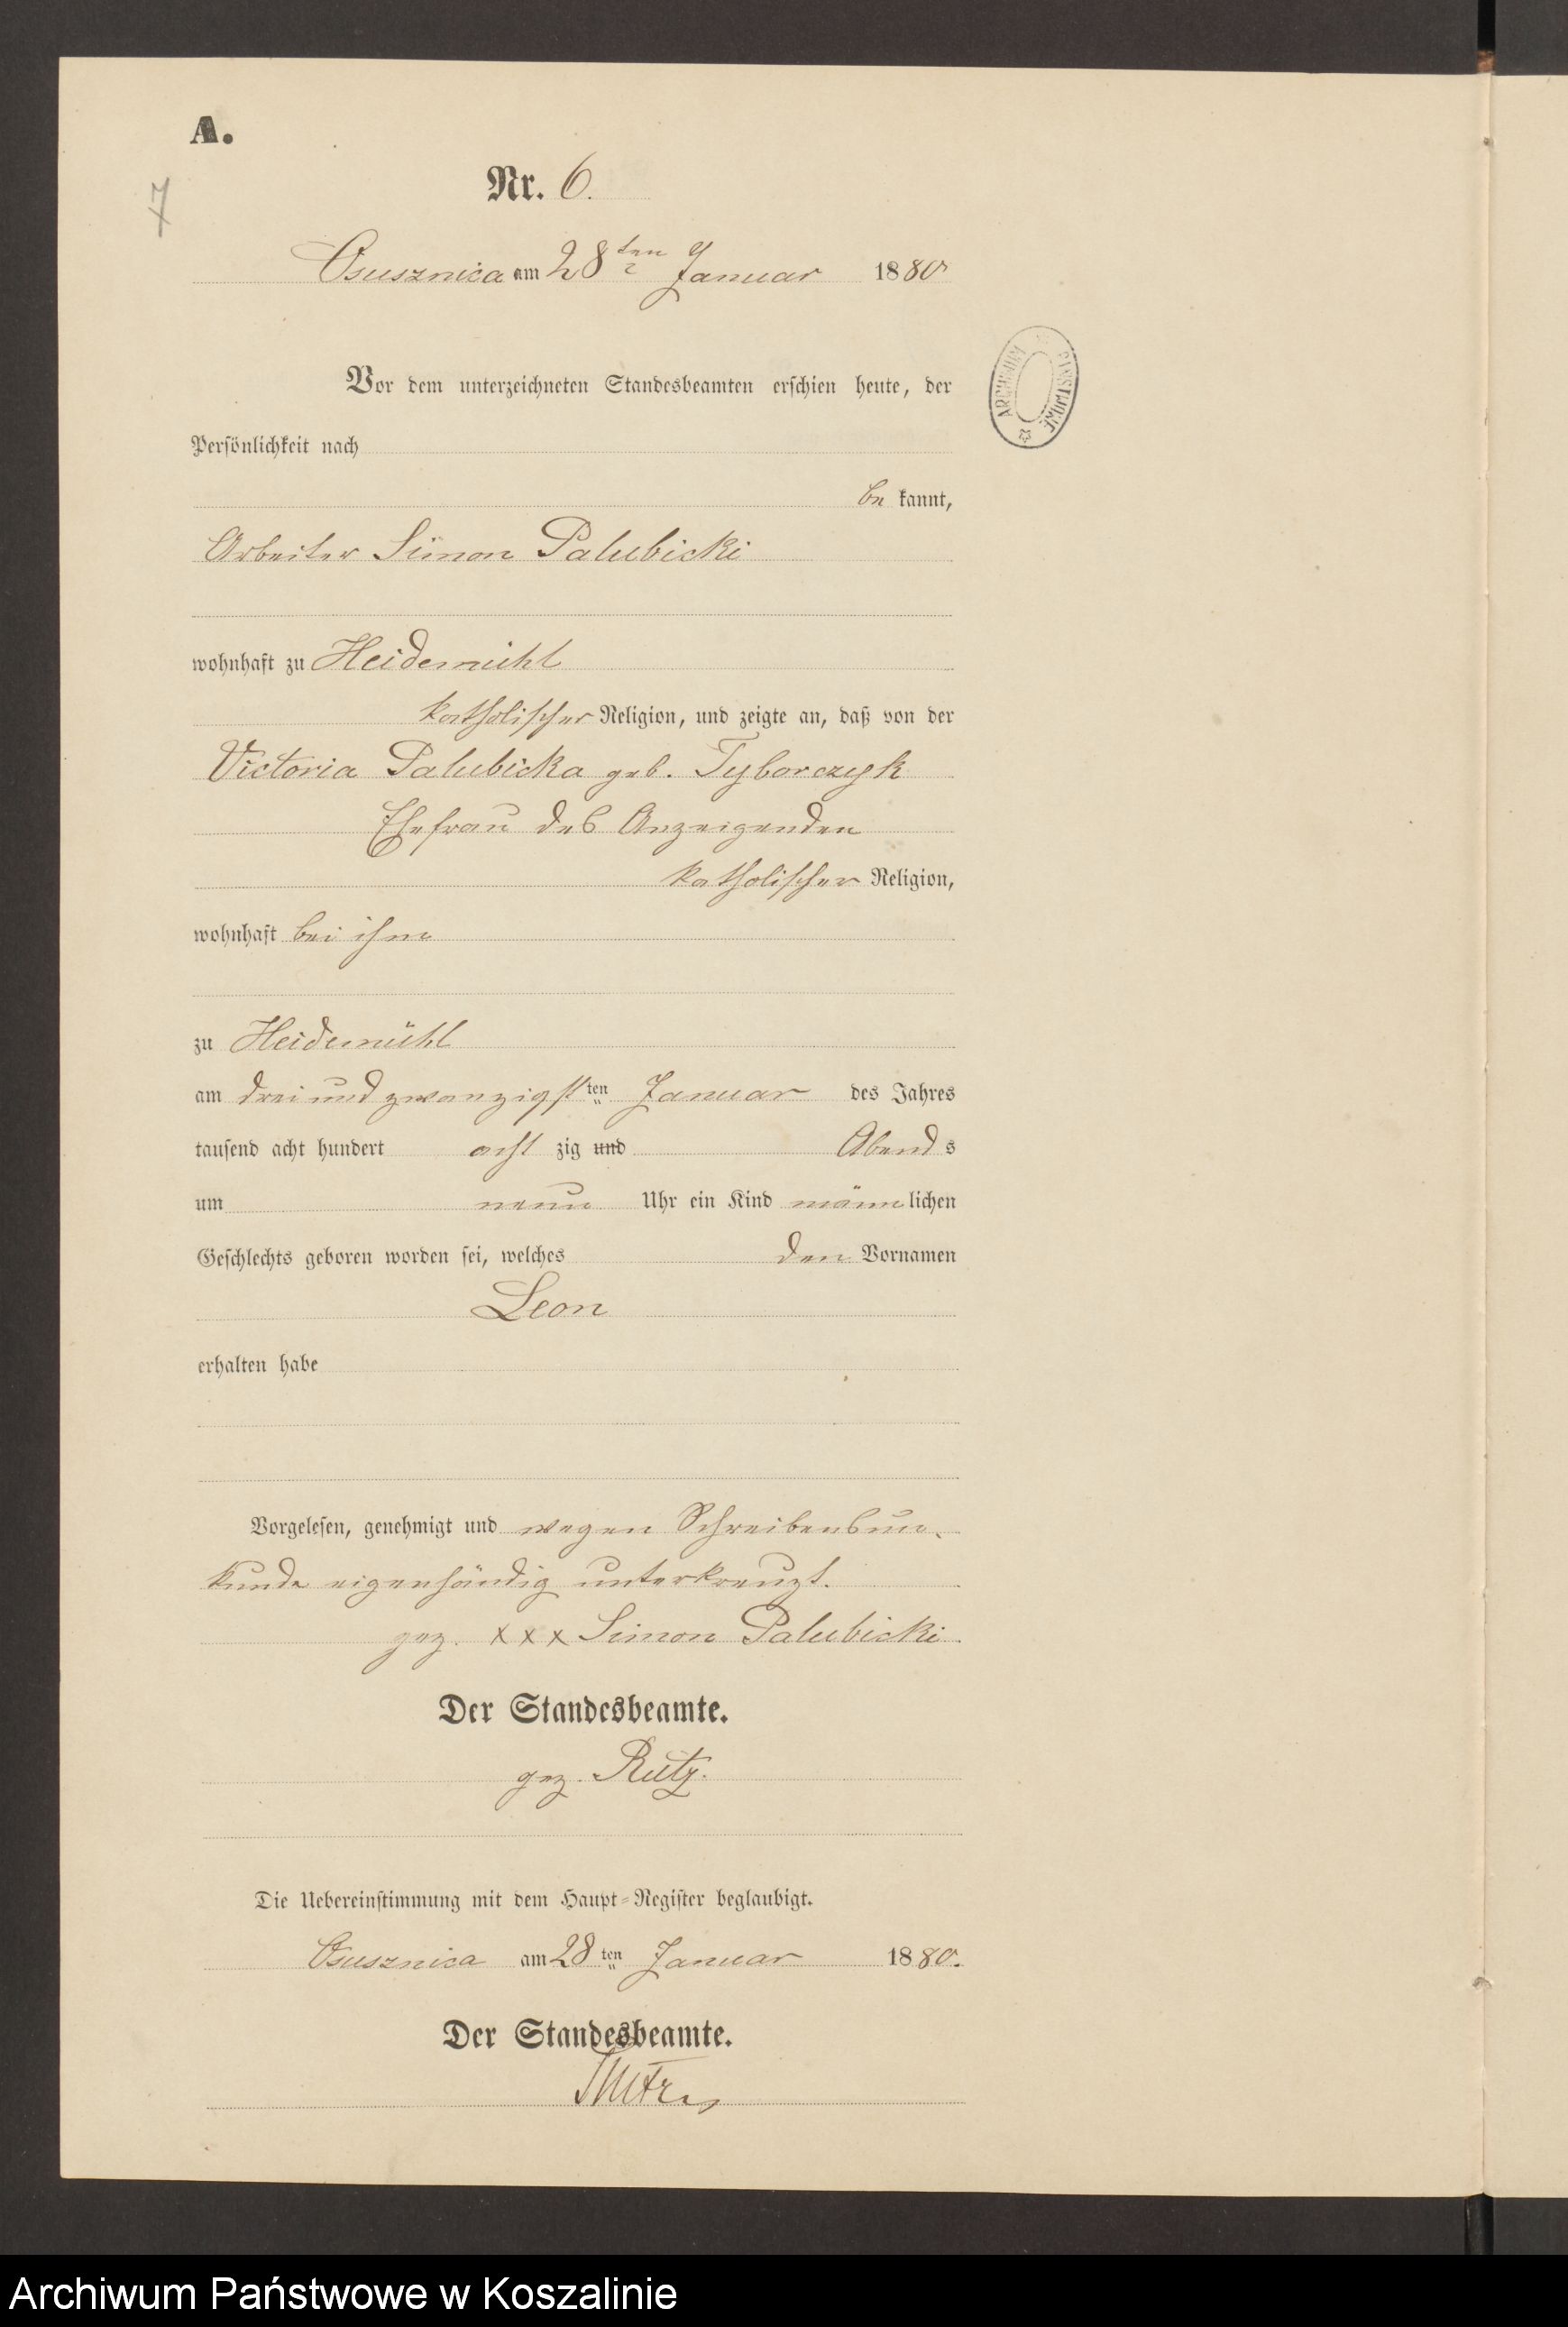 A.
7
Nr. 6.
Osusznica am 28ten Januar 1880
Vor dem unterzeichneten Standesbeamten erschien heute, der
Persönlichkeit nach
be kannt,
Arbeiter Simon Palubicki
wohnhaft zu Heidemühl
katholischer Religion, und zeigte an, daß von der
Victoria Palubicka geb. Tyborczyk
Ehefrau des Anzeigenden
katholischer Religion,
wohnhaft bei ihm
zu Heidemühl
am dreiundzwanzigsten Januar des Jahres
tausend acht hundert acht zig und Abends
um neun Uhr ein Kind männlichen
Geschlechts geboren worden sei, welches den Vornamen
Leon
erhalten habe
Vorgelesen, genehmigt und wegen Schreibensun-
kunde eigenhändig unterkreuzt.
gez. XXX Simon Palubicki.
Der Standesbeamte.
gez. Rutz.
Die Uebereinstimmung mit dem Haupt-Register beglaubigt.
Osusznica am 28ten Januar 1880.
Der Standesbeamte.
ARCHIWUM PAŃSTWOWE
Archiwum Państwowe w Koszalinie